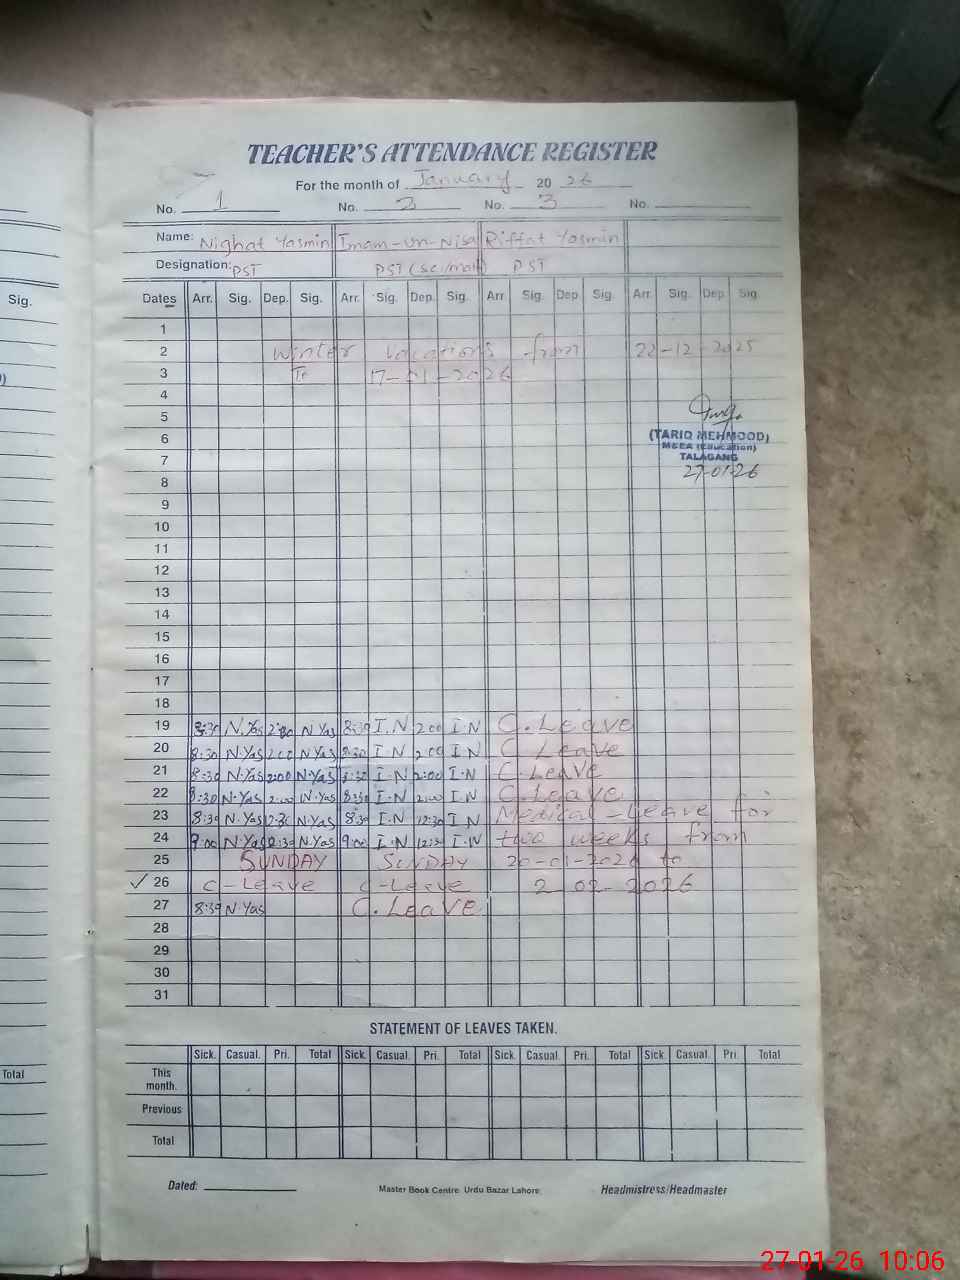 TEACHER'S ATTENDANCE REGISTER
For the month of January 2026
No. 1 No. 2 No. 3 No.
Name: Nighat Yasmin Imam-un-Nisa Riffat Yasmin
Designation: PST PST (sc/math) PST
Sig.
Dates Arr. Sig. Dep. Sig. Arr. Sig. Dep. Sig. Arr. Sig. Dep. Sig. Arr. Sig. Dep. Sig.
1
2 Winter Vacations from 22-12-2025
3 To 17-01-2026
4
5
6 (TARIQ MEHMOOD)
M&EA (Education)
7 TALAGANG
27-01-26
8
9
10
11
12
13
14
15
16
17
18
19 8:30 N.Yas 2:00 N Yas 8:30 I.N 2:00 I.N C.Leave
20 8:30 N.Yas 2:00 N Yas 8:30 I.N 2:00 I.N C Leave
21 8:30 N.Yas 2:00 N.Yas 8:30 I.N 2:00 I.N C.Leave
22 8:30 N.Yas 2:00 N.Yas 8:30 I.N 2:00 I.N C.Leave
23 8:30 N.Yas 12:30 N.Yas 8:30 I.N 12:30 I N Medical-Leave for
24 9:00 N.Yas 12:30 N.Yas 9:00 I.N 12:30 I.N two weeks from
25 SUNDAY SUNDAY 20-01-2026 to
✓ 26 C-Leave C-Leave 2 02-2026
27 8:30 N.Yas C.Leave
28
29
30
31
STATEMENT OF LEAVES TAKEN.
Sick. Casual. Pri. Total Sick. Casual. Pri. Total Sick. Casual. Pri. Total Sick. Casual. Pri. Total
Total
This month.
Previous
Total
Dated: Master Book Centre Urdu Bazar Lahore Headmistress/Headmaster
27-01-26 10:06